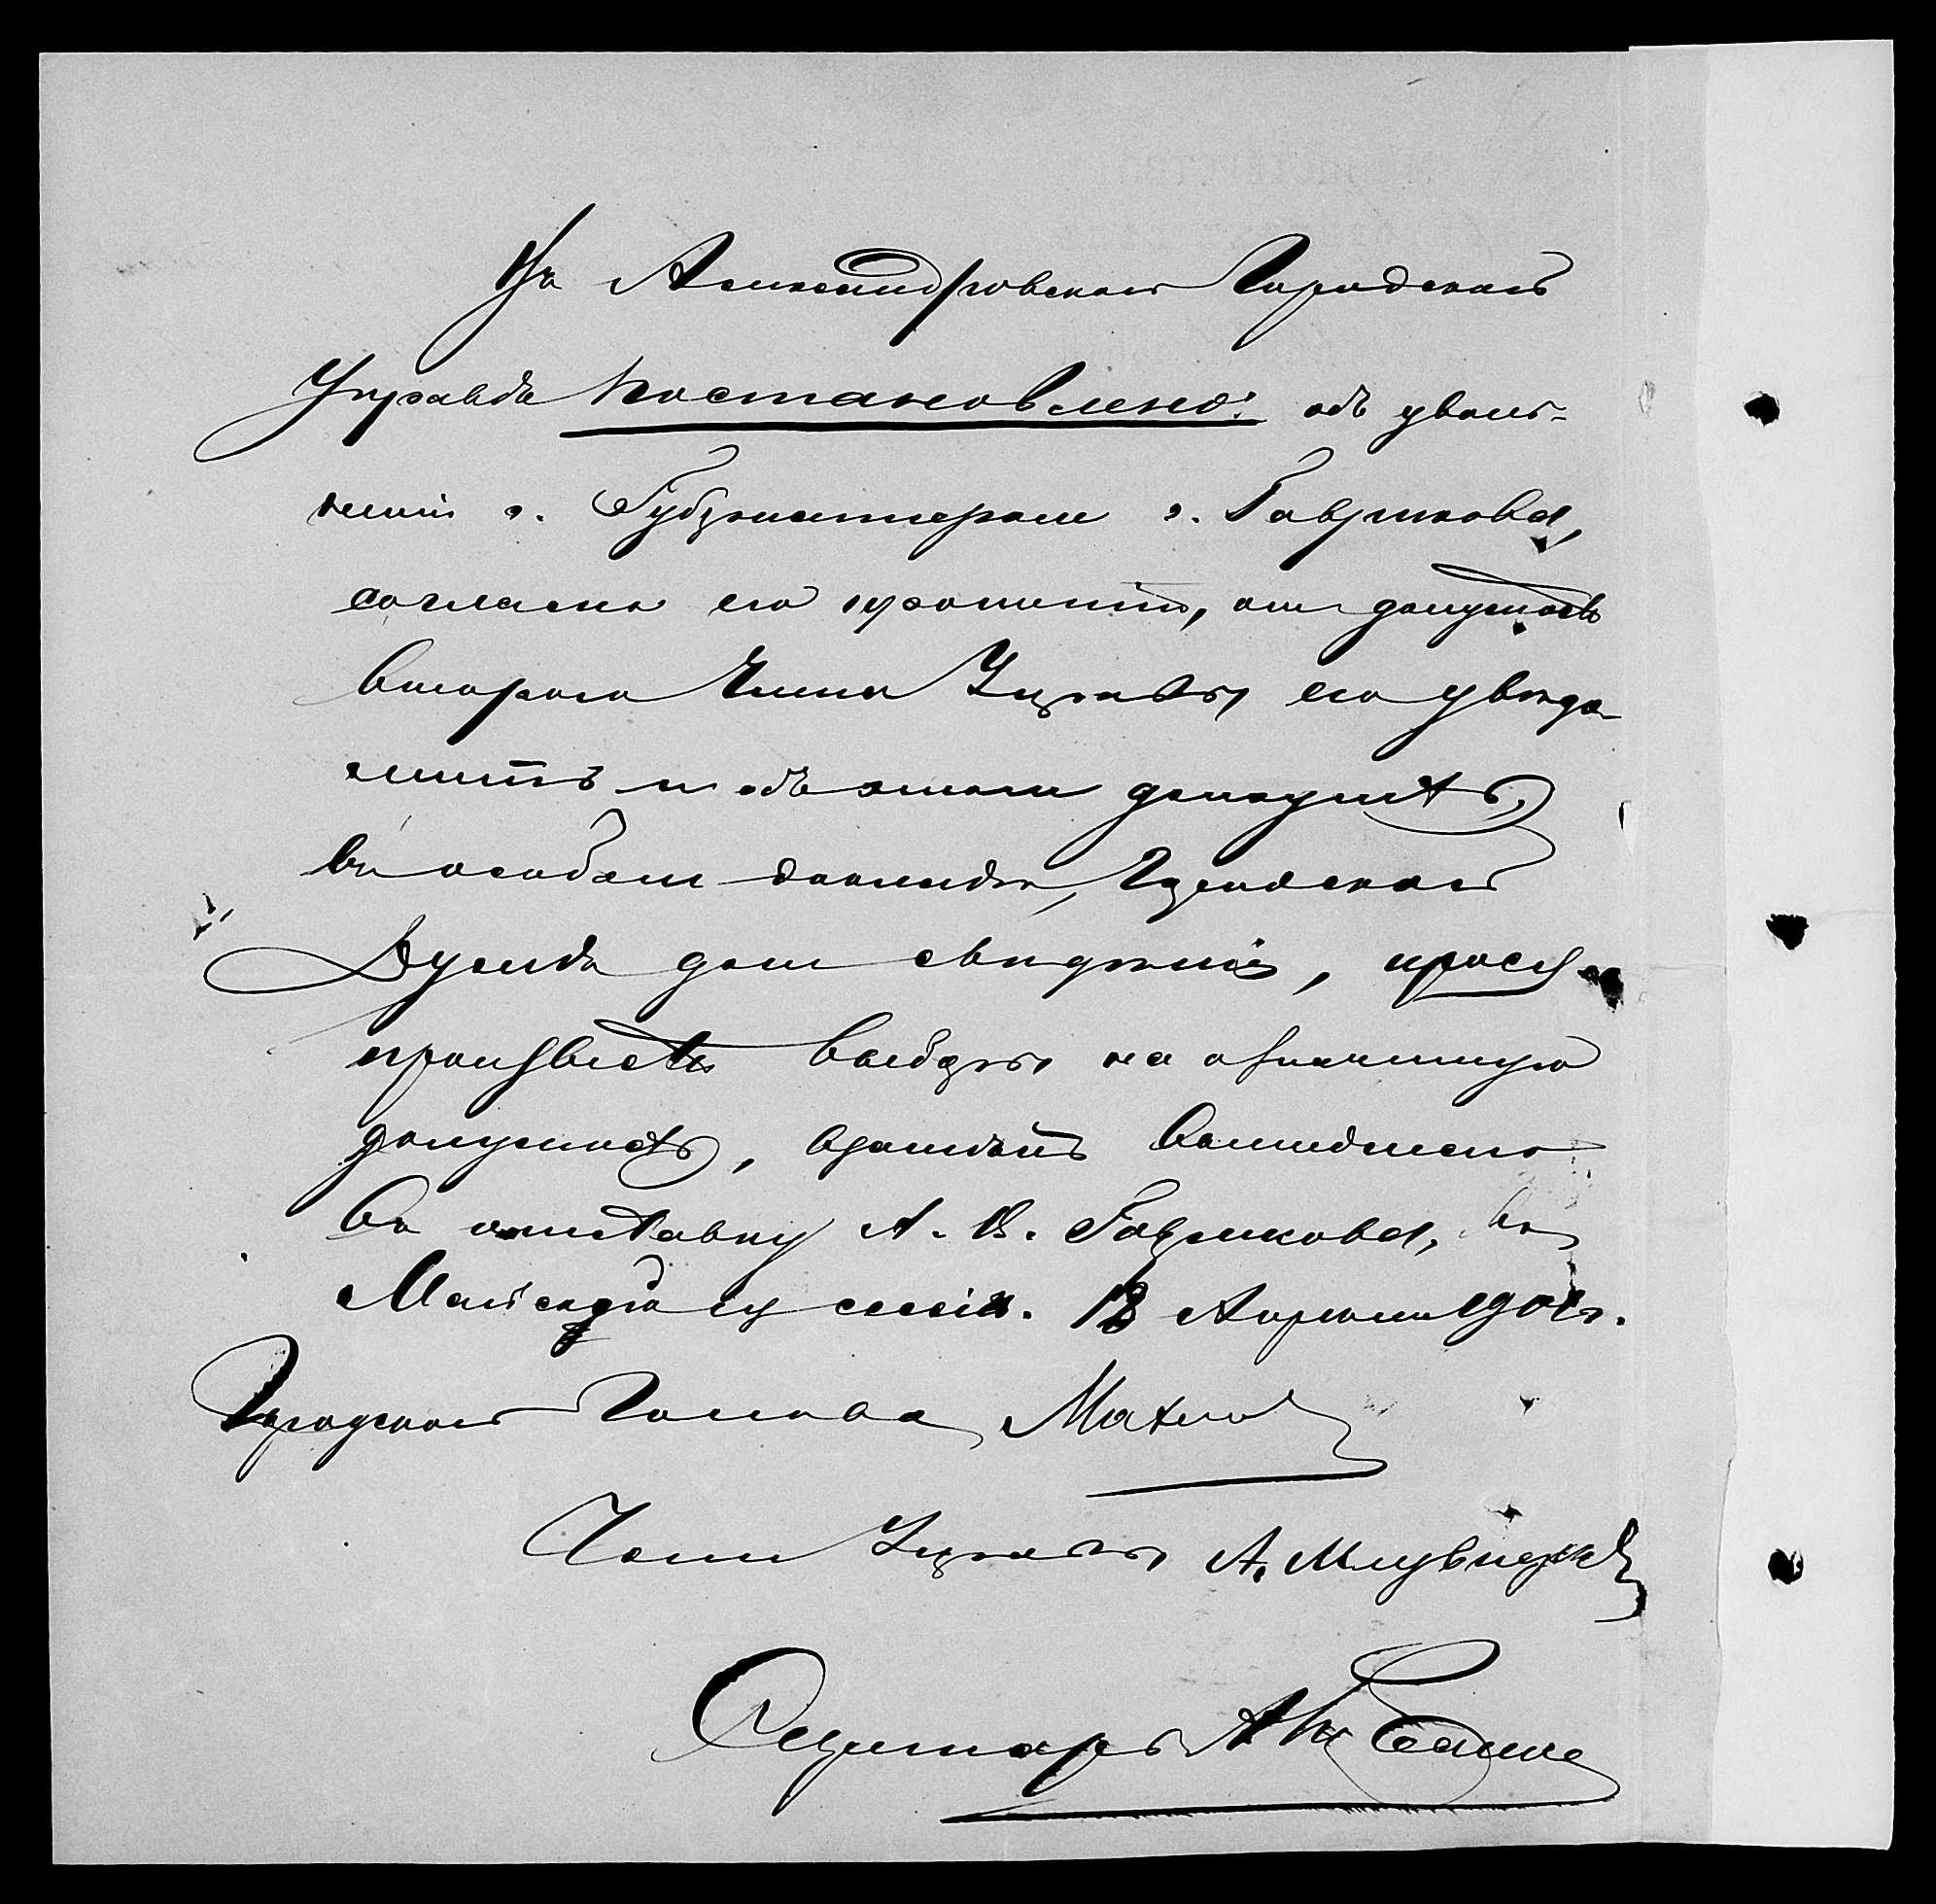 Въ Александровской Городской
Управѣ постановлено: объ уволь-
неніи г. Губернаторомъ г. Гаврикова,
согласно его прошенію, отъ должности
второго Члена Управы, его увѣдо-
мить и объ этомъ доложить,
въ особомъ докладѣ, Городской
Думѣ для свѣдѣнія, прося
произвести выборы на означенную
должность, вмѣсто вышедшаго
въ отставку А. В. Гаврикова, въ
Майскую сессію. 18 Апрѣля 190 г.
Городской Голова
Членъ Управы А.
Секретарь А